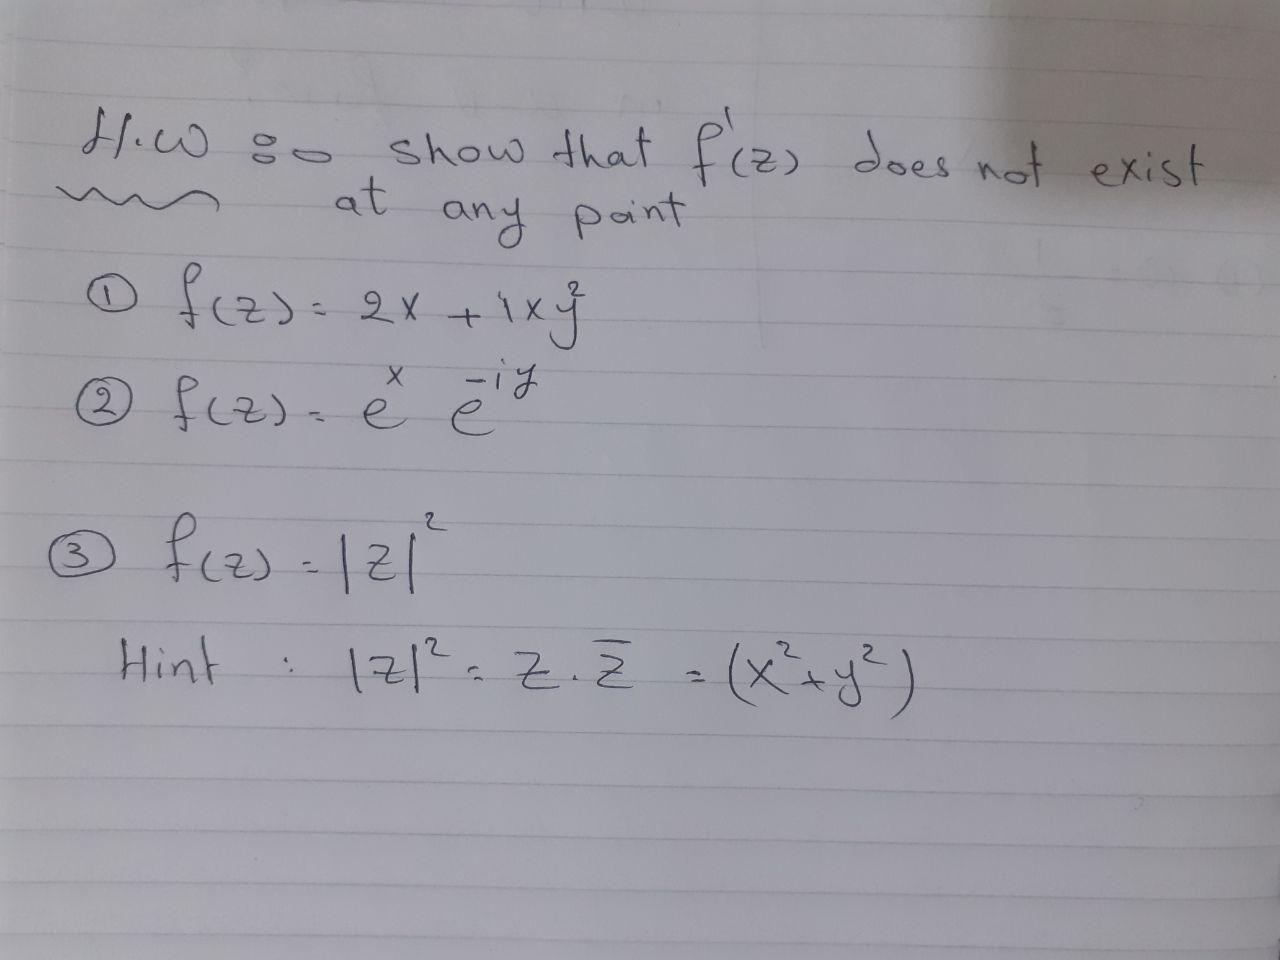 H.W : show that f'(z) does not exist
at any point
① f(z) = 2x + ixy²
② f(z) = eˣ e⁻ⁱʸ
③ f(z) = |z|²
Hint : |z|² = z . z̅ = (x² + y²)